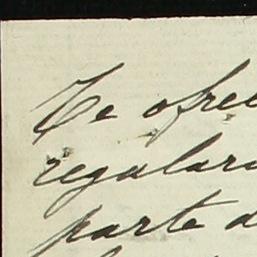 Te ofrec
regalar
parte d